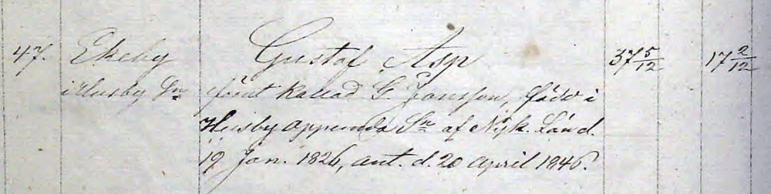 47. Ekeby Gustaf Asp 37 5/12 17 2/12
i Husby Sn förut kallad G. Jansson, född i
Husby oppunda Sn af Nyk. Länd.
19 Jan. 1826, ant. d. 20 April 1846.